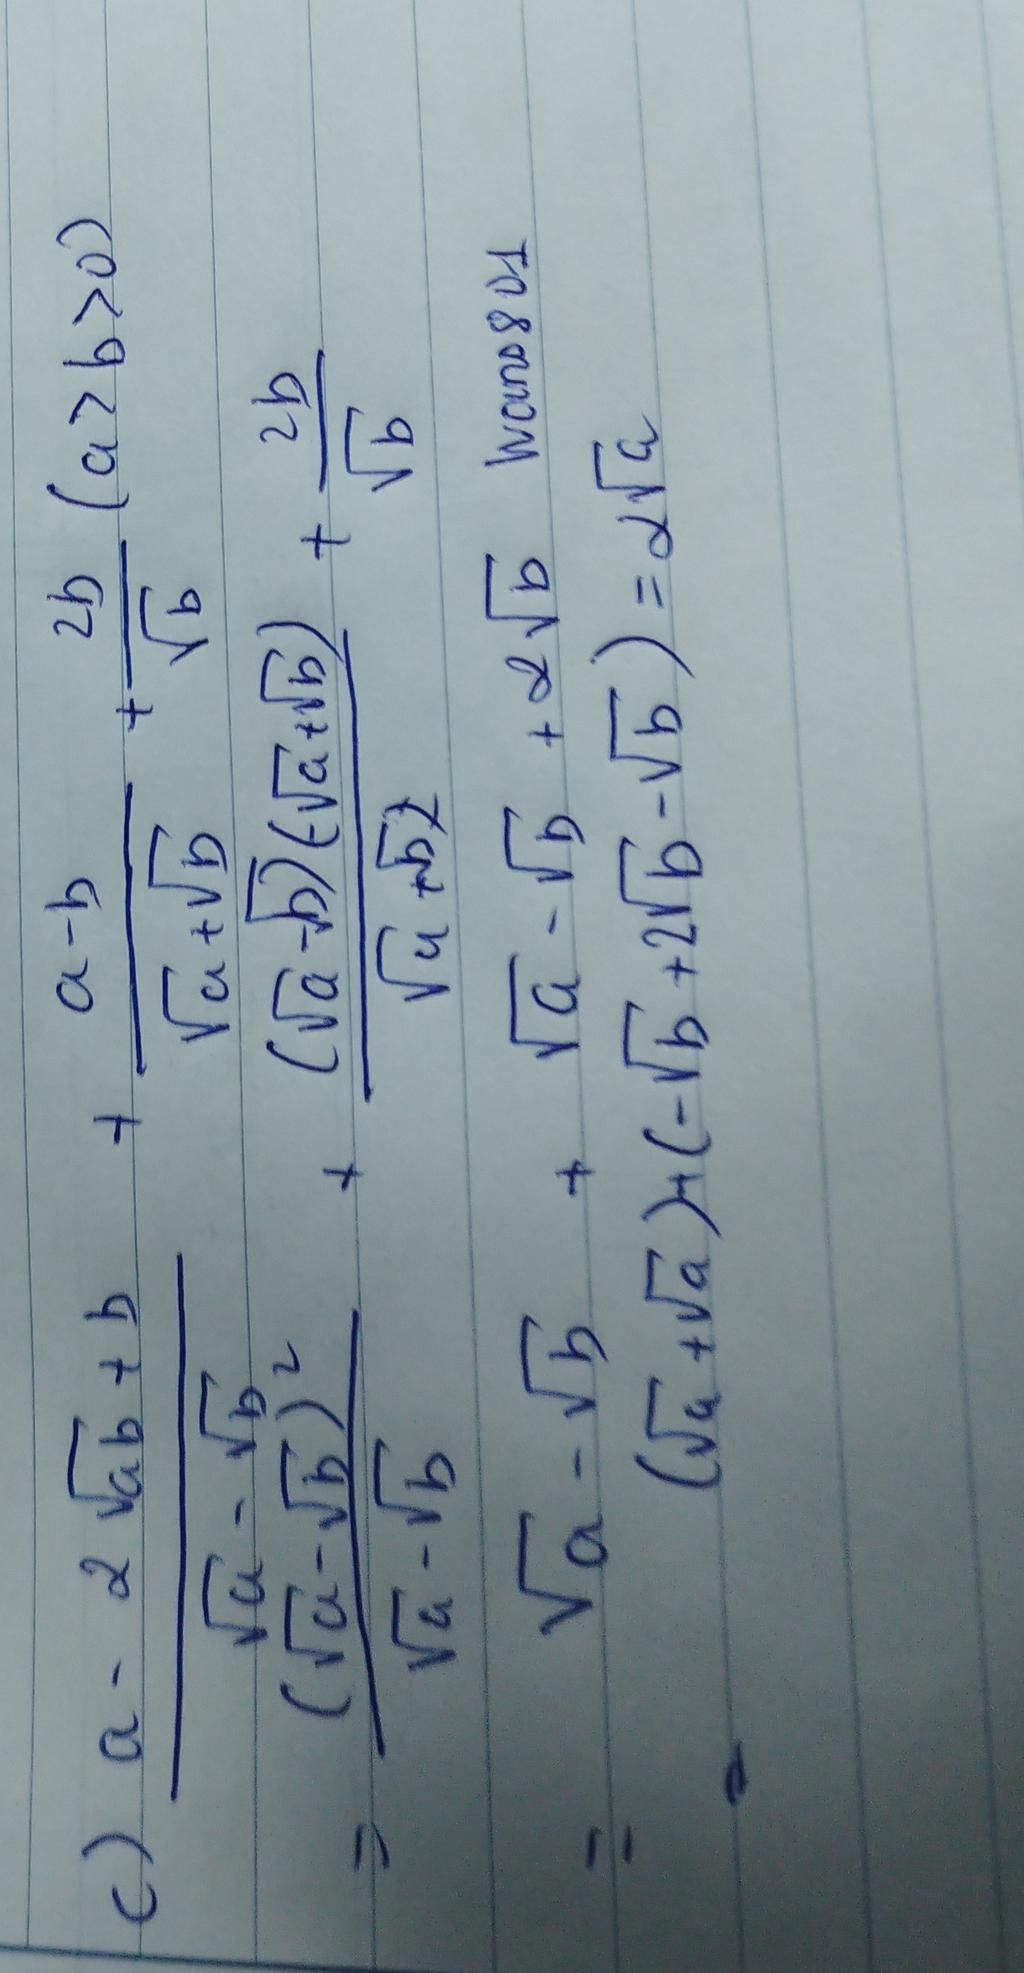 c) a - 2√ab + b / √a - √b + a - b / √a + √b + 2b / √b (a > b > 0)
= (√a - √b)² / √a - √b + (√a - √b)(√a + √b) / √a + √b + 2b / √b
= √a - √b + √a - √b + 2√b wano801
(√a + √a) + (-√b + 2√b - √b) = 2√a